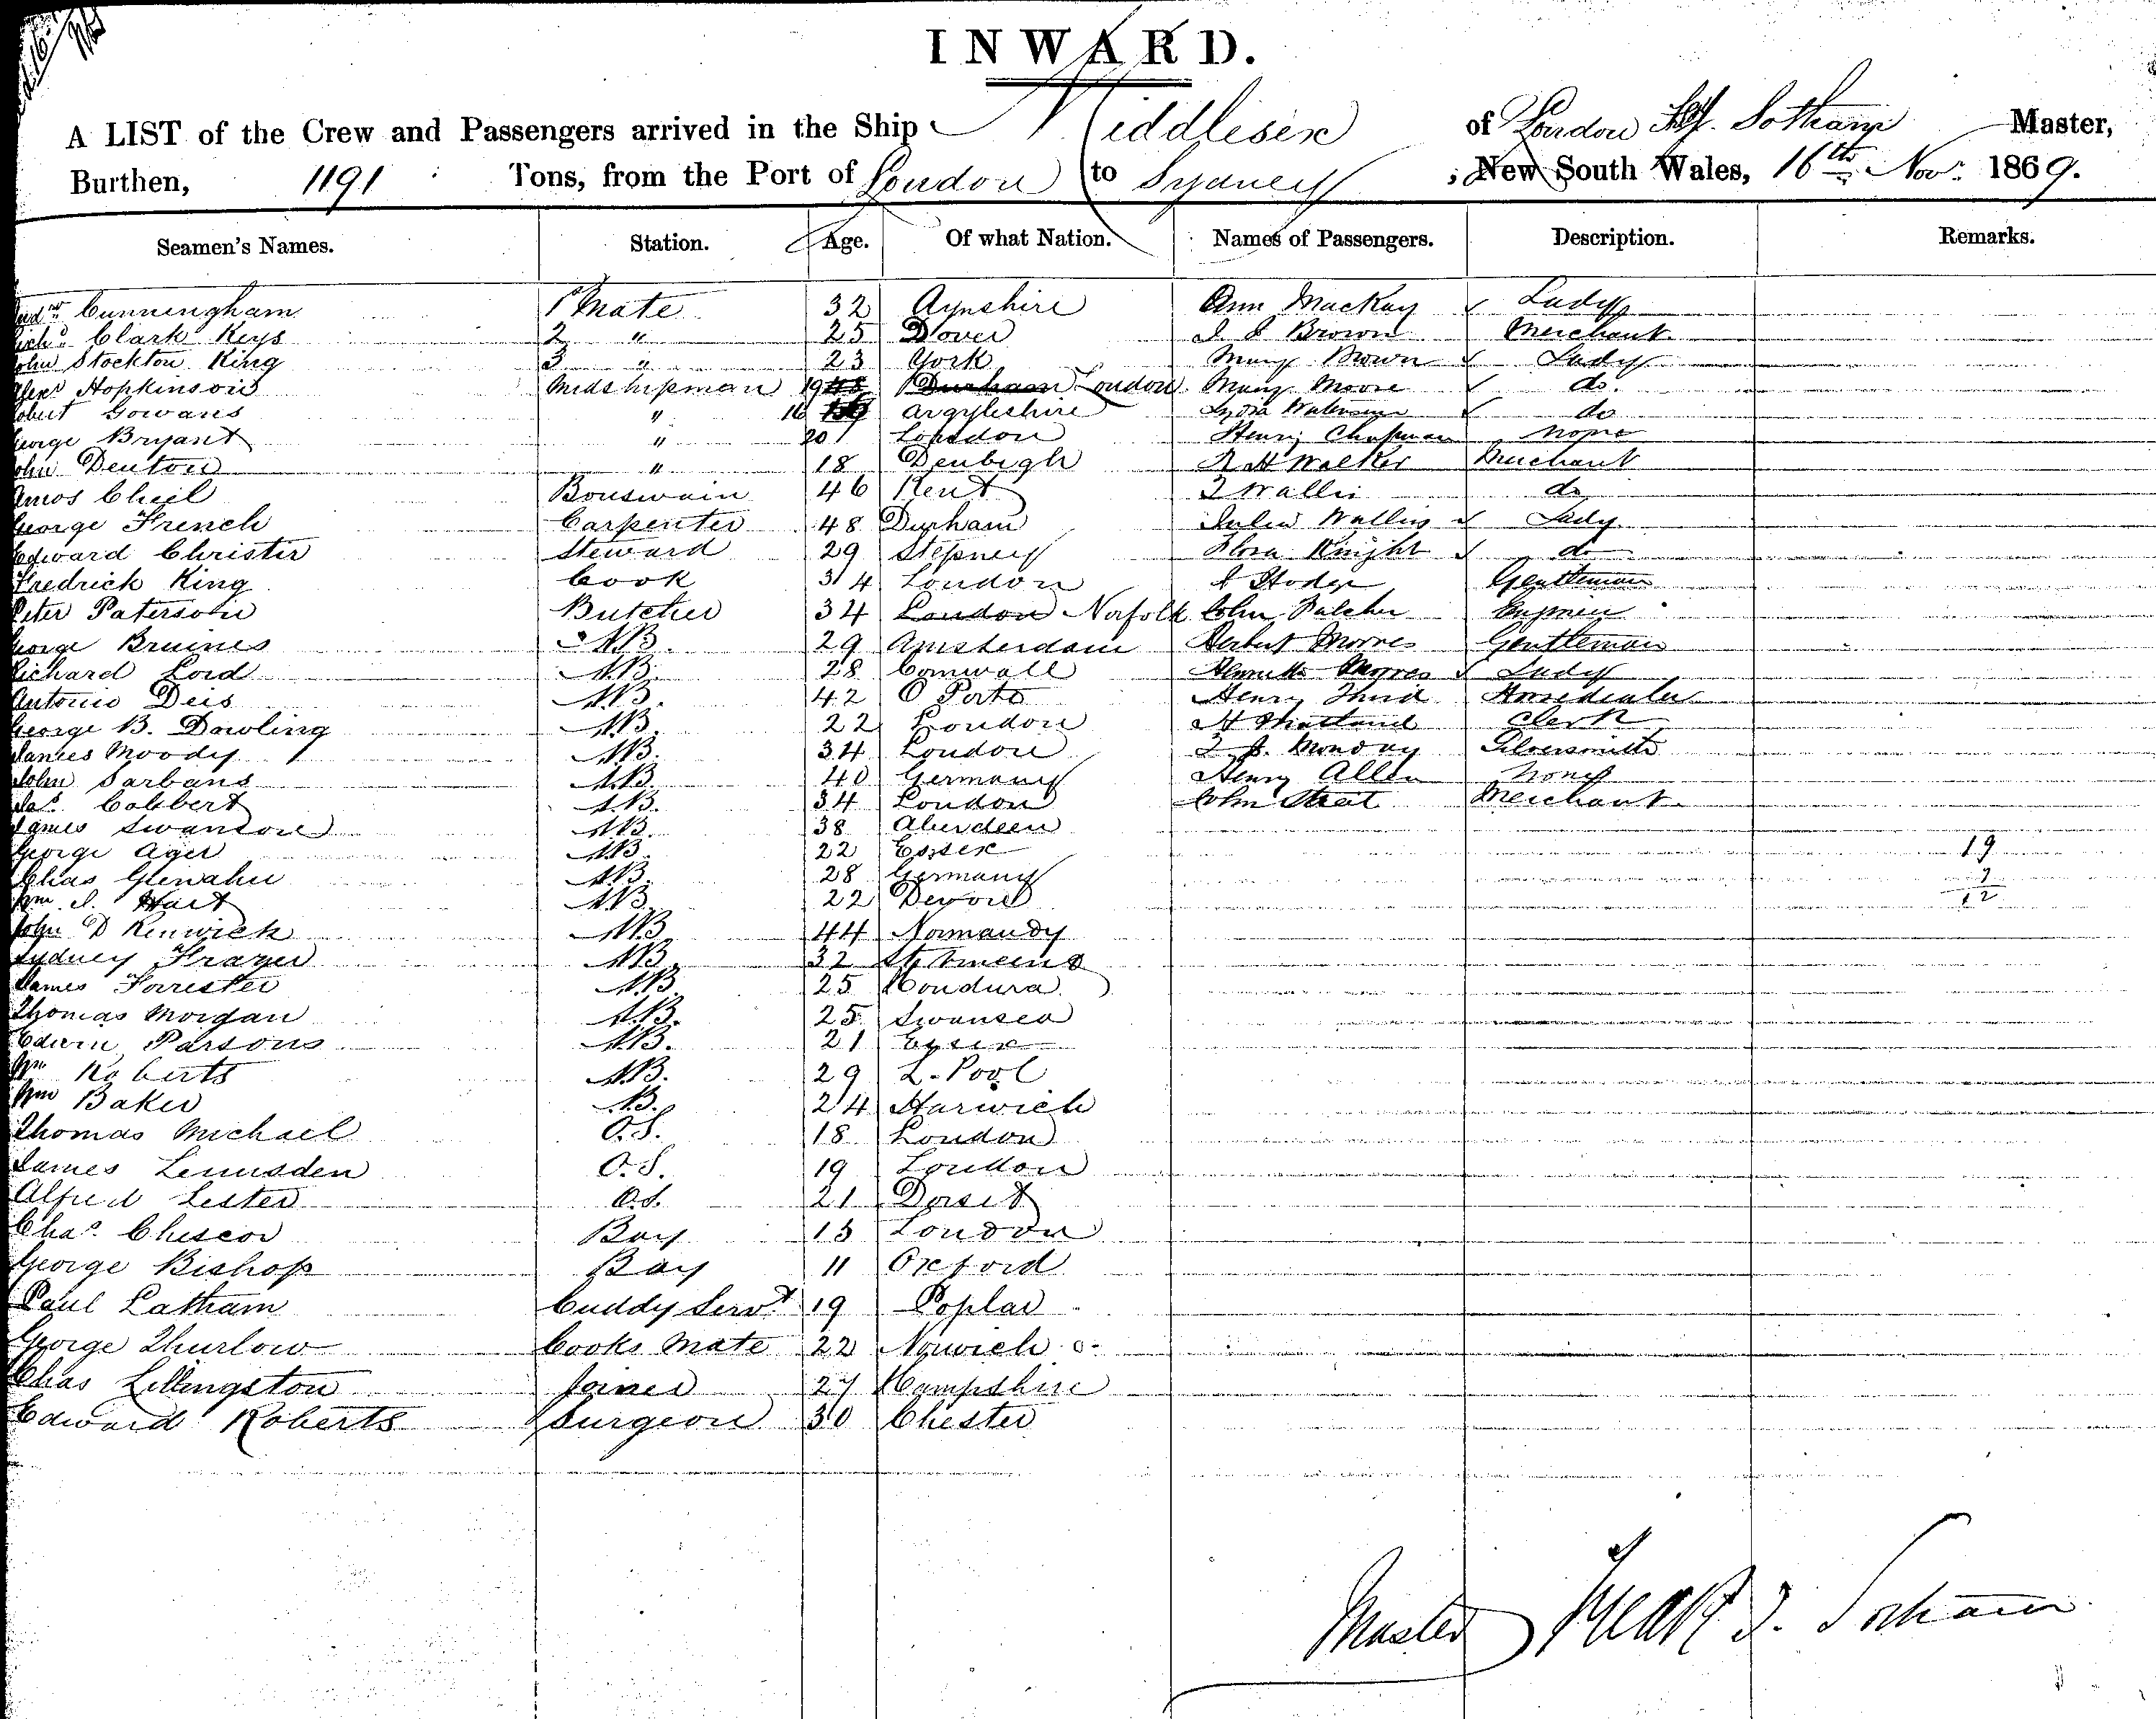 INWARD.
A LIST of the Crew and Passengers arrived in the Ship Middlesex of London Sotham Master,
Burthen, 1191 Tons, from the Port of London to Sydney, New South Wales, 16th Nov. 1869.
Seamen's Names. Station. Age. Of what Nation. Names of Passengers. Description. Remarks.
Cunningham 1st Mate 32 Ayrshire Ann MacKay ✓ Lady
Richd Clark Keys 2 " 25 Dover Brown Merchant
John Stockton King 3 " 23 York Mary Brown ✓ Lady
Alexr Hopkinson Midshipman 19 Durham London Mary Moore ✓ do.
Robert Gowans " 16 Argyleshire Lydia ✓ do
George Bryant " 20 London Henry Chapman None
John Denton " 18 Denbigh R H Walker Merchant
Amos Cheil Bouswain 46 Kent Wallis do
George French Carpenter 48 Durham Julia Wallis ✓ Lady
Edward Christie Steward 29 Stepney Flora Knight ✓ do
Fredrick King Cook 34 London Hodge Gentleman
Peter Paterson Butcher 34 London Norfolk John
George Bruines A.B. 29 Amsterdam Herbert Morres Gentleman
Richard Lord A.B. 28 Cornwall Henrietta Morres ✓ Lady
Antonio Deis A.B. 42 O Porto Henry Horsedealer
George B. Dowling A.B. 22 London Clerk
James Moody A.B. 34 London Monday Silversmith
John Sarbans A.B. 40 Germany Henry Allen None
Jas. Cobbert A.B. 34 London John Merchant
James Swanson A.B. 38 Aberdeen
George Ager A.B. 22 Essex 19
Chas Glewahn A.B. 28 Germany 7
Wm. J. Hart A.B. 22 Devon 12
John D Renwick A.B. 44 Normandy
Sydney Frazer A.B. 32 St Vincent
James Forrester A.B. 25 Hondura
Thomas Morgan A.B. 25 Swansea
Edwin Parsons A.B. 21 Essex
Wm Roberts A.B. 29 L. Pool
Wm Baker A.B. 24 Harwich
Thomas Michael O.S. 18 London
James Lumsden O.S. 19 London
Alfred Lester O.S. 21 Dorset
Chas. Chescor Boy 15 London
George Bishop Boy 11 Oxford
Paul Latham Cuddy Servt 19 Poplar
George Thurlow Cooks Mate 22 Norwich
Chas Lillingston Joiner 27 Hampshire
Edward Roberts Surgeon 30 Chester
Master Sotham